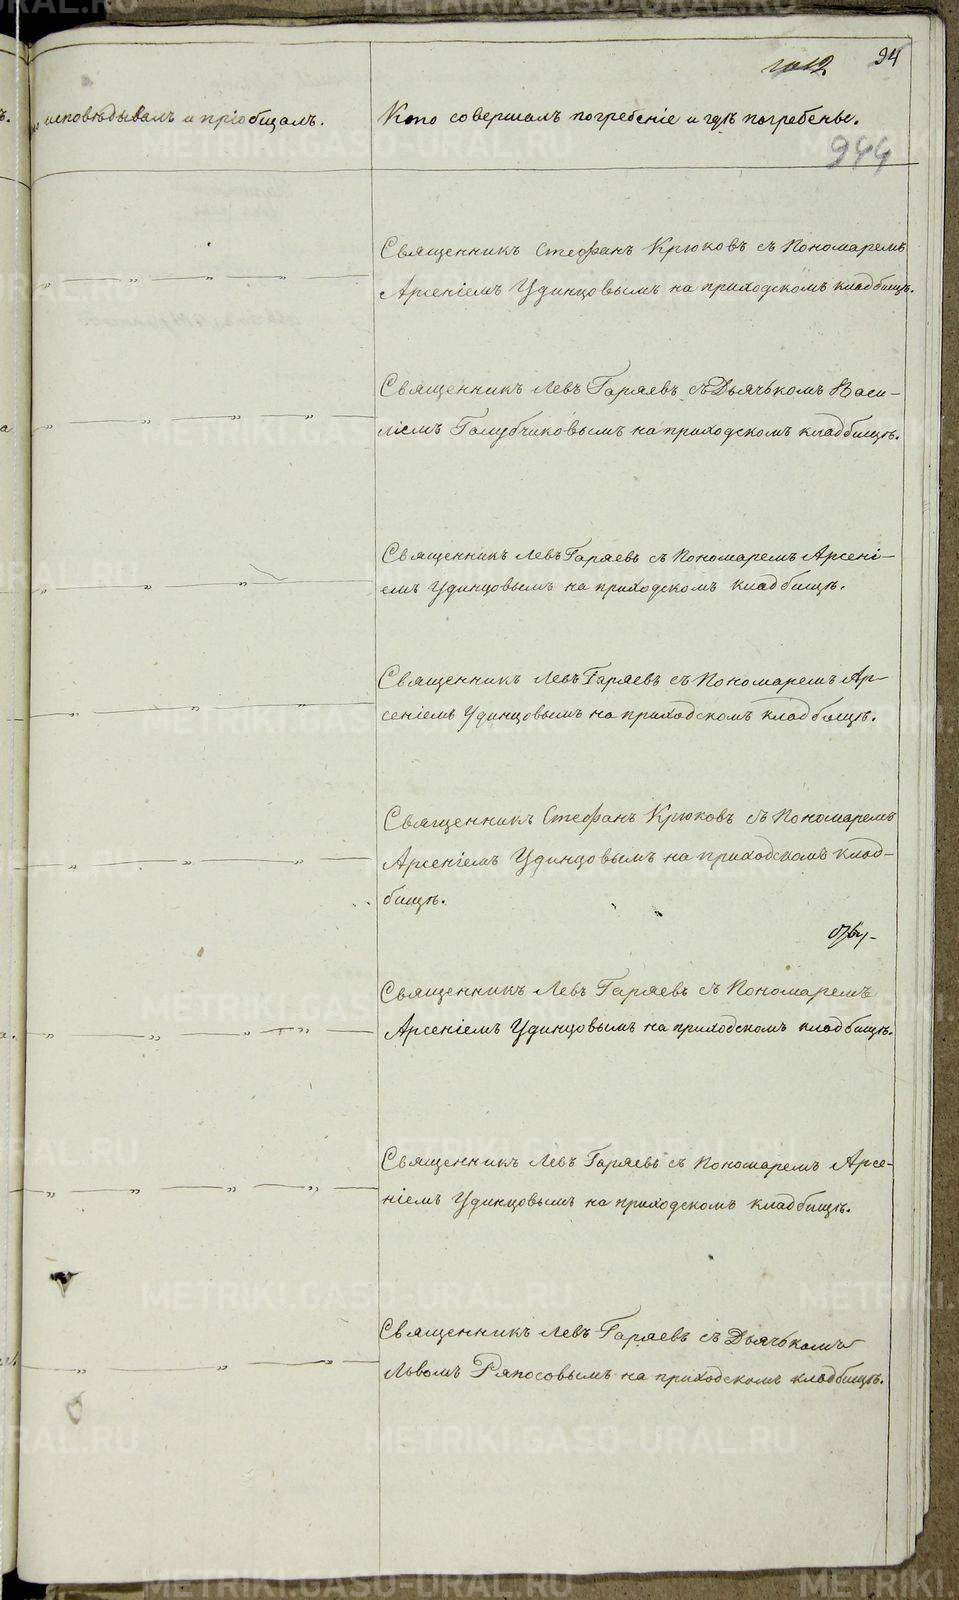 94
исповѣдывалъ и пріобщалъ.
Кто совершалъ погребеніе и гдѣ погребены.
944
Священникъ Стефанъ Крюковъ съ Пономаремъ
Арсеніемъ Удинцовымъ на приходскомъ кладбищѣ.
Священникъ Левъ Гаряевъ съ Дьячькомъ Васи-
ліемъ Голубчиковымъ на приходскомъ кладбищѣ.
Священникъ Левъ Гаряевъ съ Пономаремъ Арсені-
емъ Удинцовымъ на приходскомъ кладбищѣ.
Священникъ Левъ Гаряевъ съ Пономаремъ Ар-
сеніемъ Удинцовымъ на приходскомъ кладбищѣ.
Священникъ Стефанъ Крюковъ съ Пономаремъ
Арсеніемъ Удинцовымъ на приходскомъ клад-
бищѣ.
Священникъ Левъ Гаряевъ съ Пономаремъ
Арсеніемъ Удинцовымъ на приходскомъ кладбищѣ.
Священникъ Левъ Гаряевъ съ Пономаремъ Арсе-
ніемъ Удинцовымъ на приходскомъ кладбищѣ.
Священникъ Левъ Гаряевъ съ Дьячькомъ
Львомъ Ряпосовымъ на приходскомъ кладбищѣ.
METRIKI.GASO-URAL.RU